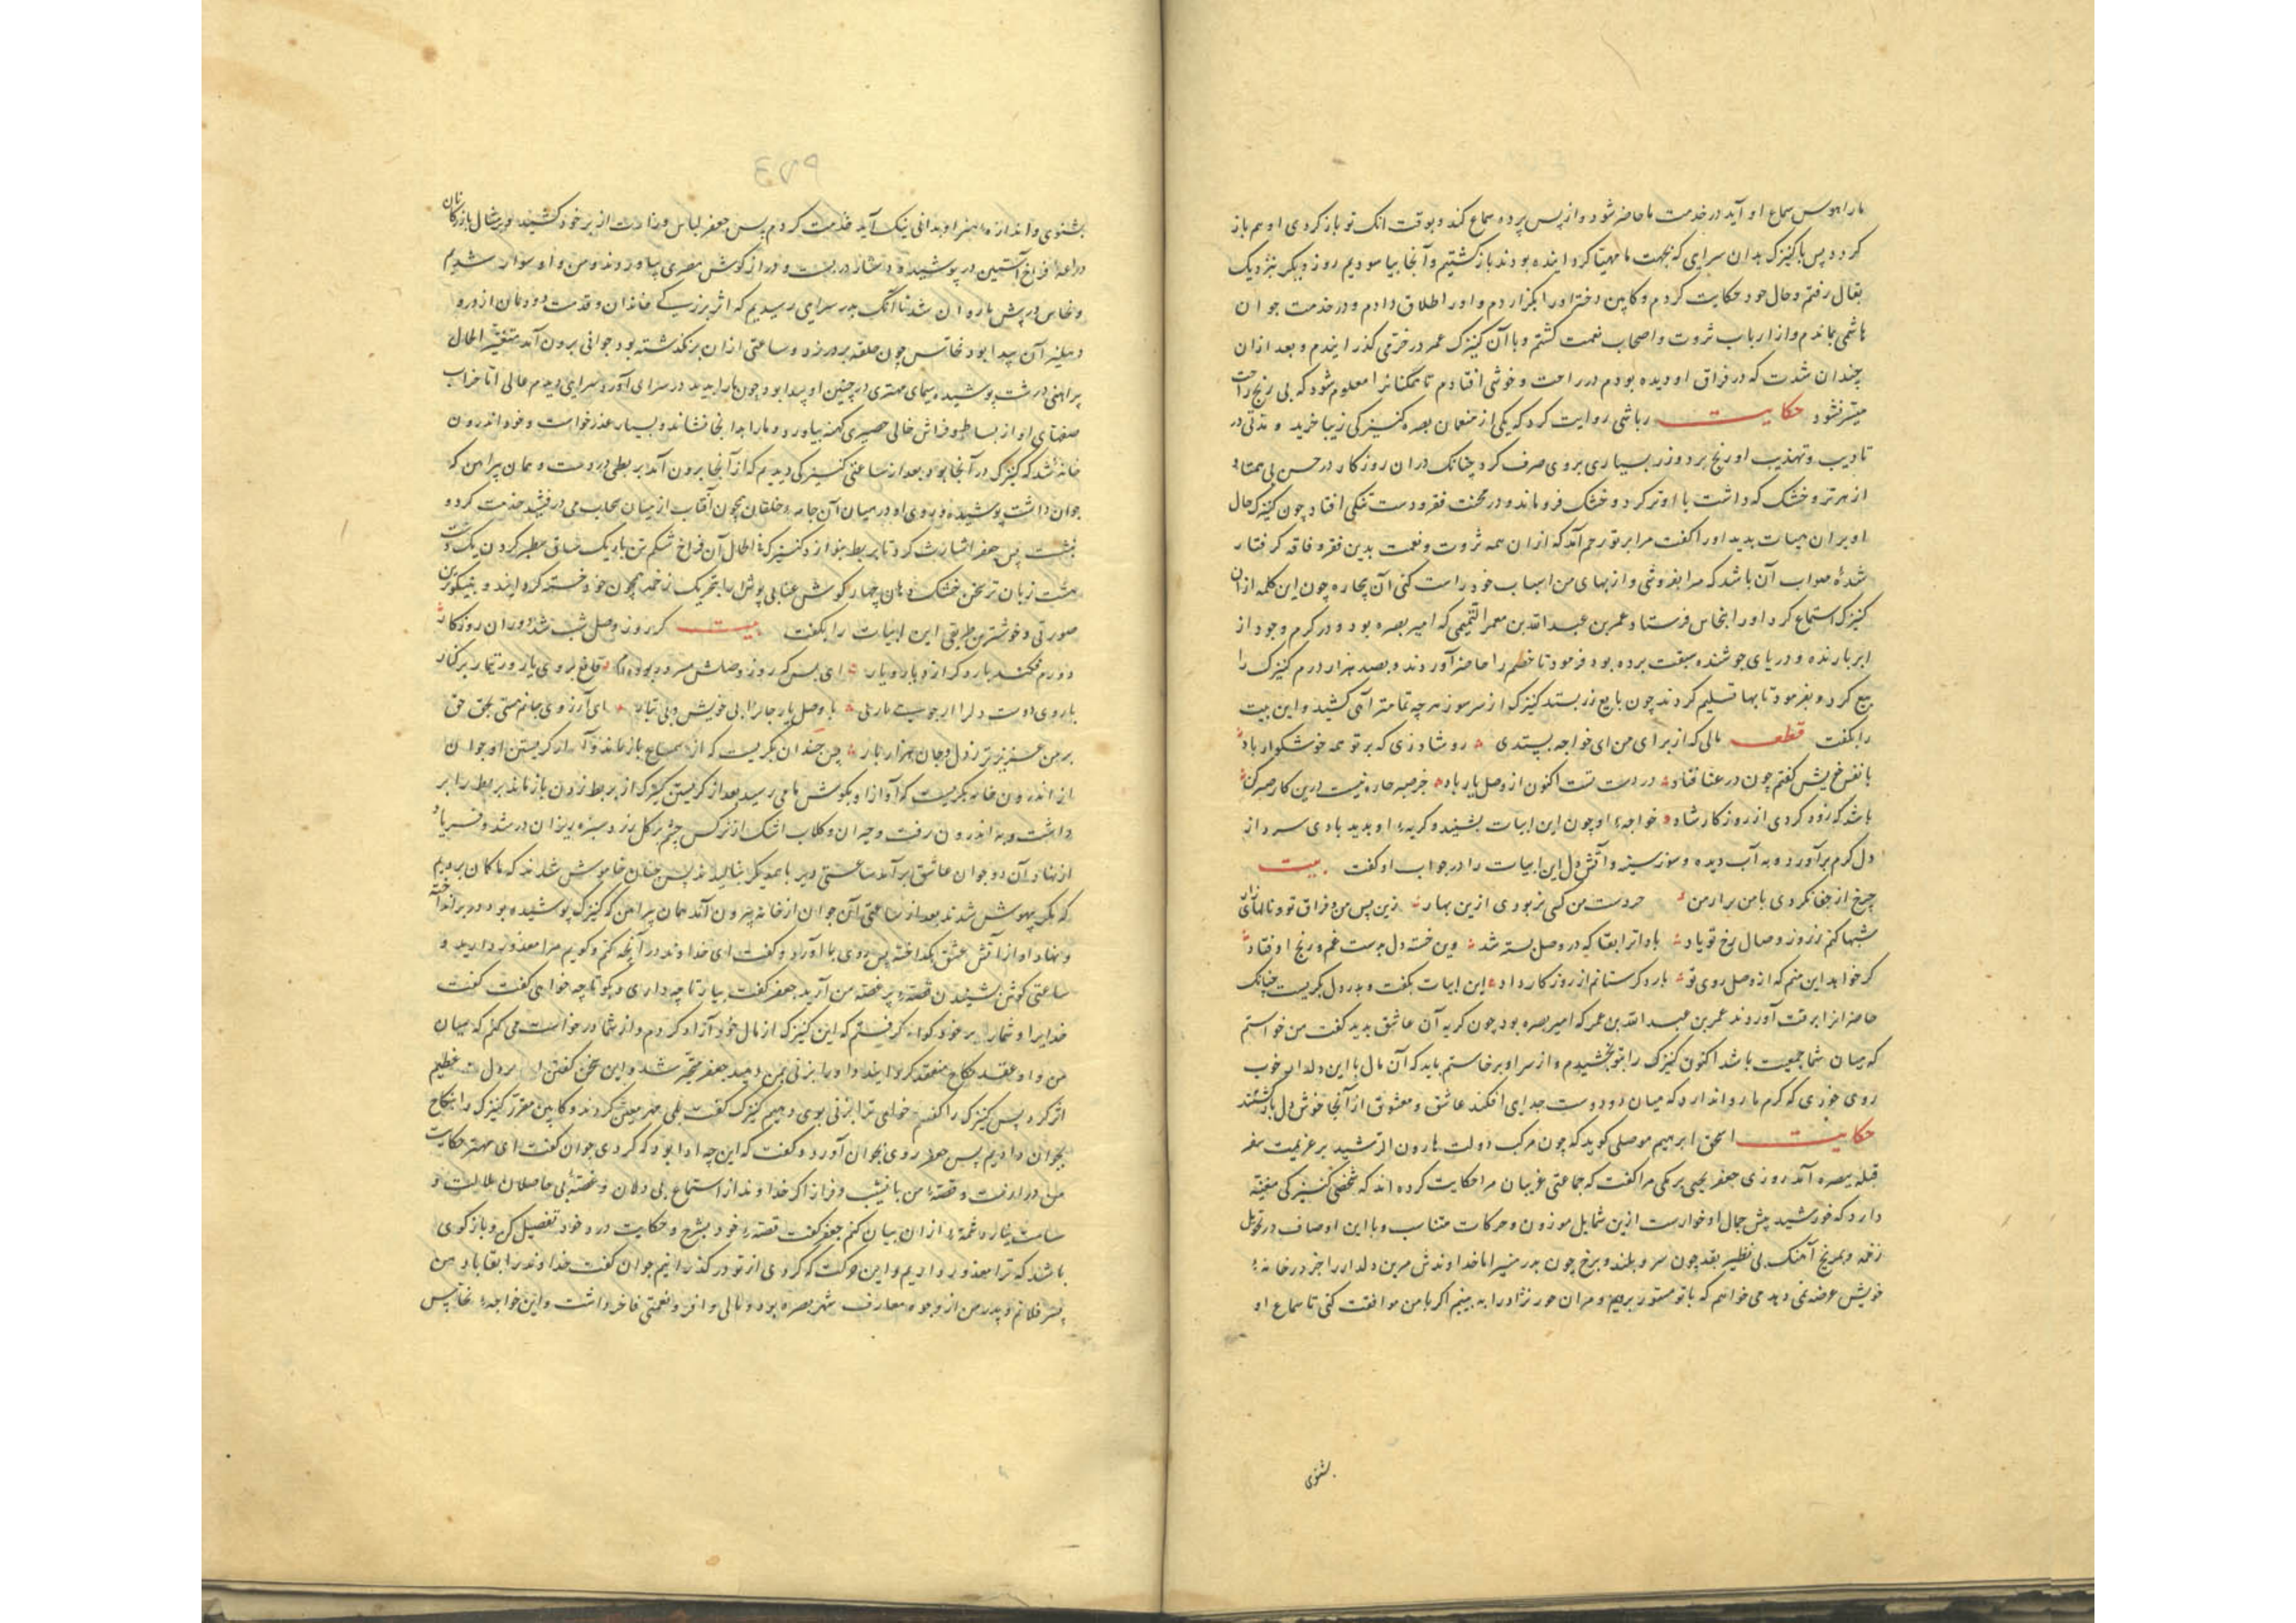 ما را هوس سماع او آید در خدمت ما حاضر شود و از پس پرده سماع کند و بوقت انک تو باز کردی او هم باز
کردد پس با کنیزک بدان سرای که بجهت ما مهیا کردانیده بودند باز کشتیم و آنجا بیاسودیم روز دیکر بنزدیک
بقال رفتم و حال خود حکایت کردم و کابین دختر او را بکزاردم و او را طلاق دادم و در خدمت جوان
هاشمی بماندم و از ارباب ثروت و اصحاب نعمت کشتم و با آن کنیزک عمر در خرمی کذرانیدم و بعد ازان
چندان شدت که در فراق او دیده بودم در راحت و خوشی افتادم تا همکنانرا معلوم شود که بی رنج راحت
میسر نشود حکایت رباشی روایت کرد که یکی از منعمان بصره کنیزکی زیبا خرید و مدتی در
تادیب و تهذیب او رنج برد و زر بسیاری بروی صرف کرد چنانک دران روزکار در حسن بی همتا و
از هر تر و خشک که داشت با او تر کرد و خشک فرو ماند و در محنت فقر و دست تنکی افتاد چون کنیزک حال
او بران هیات بدید او را کفت مرا بر تو رحم آمد که ازان همه ثروت و نعمت بدین فقر و فاقه کرفتار
شدهٔ صواب آن باشد که مرا بفروشی و از بهای من اسباب خود راست کنی آن بیچاره چون این کلمه ازان
کنیزک استماع کرد او را بنخاس فرستاد و عمر بن عبدالله بن معمر التیمی که امیر بصره بود و در کرم وجود از
ابر بارنده و دریای جوشنده سبقت برده بود فرمود تا حاضر آوردند و بصد هزار درم کنیزک را
بیع کرد و بفرمود تا بها تسلیم کردند چون بایع زر بستد کنیزک از سر سوز هر چه تمامتر آهی کشید و این بیت
را بکفت قطعه مالی که از برای من ای خواجه بستدی رو شاد زی که بر تو همه خوشکوار باد
با نفس خویش کفتم چون در عنا فتاد در دست تست اکنون از وصل یار باد جز صبر چاره نیست درین کار صبر کن
باشد که زود کردی از روزکار شاد خواجه او چون این ابیات بشنید و کریه او بدید بادی سرد از
دل کرم برآورد و به آب دیده و سوز سینه و آتش دل این ابیات را در جواب او کفت بیت
چرخ از جفا نکردی با من برار من خردست من کی بزبودی ازین بهار زین پس من و فراق تو و نالهای زار
شبها کنم ز روز وصال رخ تو یاد بادا ترا بقا که در وصل بسته شد وین خسته دل بدست غم و رنج اوفتاد
کر خواهد این منم که از وصل روی تو بار دکر ستانم از روزکار داد این ابیات بکفت و بدرد دل بکریست چنانک
حاضرانرا برقت آوردند عمر بن عبدالله بن عمر که امیر بصره بود چون کریه آن عاشق بدید کفت من خواستم
که میان شما جمعیت باشد اکنون کنیزک را بتو بخشیدم و از سر او برخاستم باید که آن مال با این دلدار خوب
روی خوری که کرم ما روا ندارد که میان دو دوست جدایی افکند عاشق و معشوق از آنجا خوش دل بازکشتند
حکایت اسحق ابرهیم موصلی کوید که چون مرکب دولت هارون الرشید بر عزیمت سفر
قبله ببصره آمد روزی جعفر یحیی برمکی مرا کفت که جماعتی غریبان مرا حکایت کرده اند که شخصی کنیزکی مغنیه
دارد که خورشید پیش جمال او خوارست ازین شمایل موزون و حرکات متناسب و با این اوصاف در تحویل
زخمه و بمرنج آهنک بی نظیر بقد چون سرو بلند و برخ چون بدر منیر اما خداوندش مر این دلدار را جز در خانه
خویش عرضه نمی دهد می خواهم که با تو مستور برویم و مران حور نژاد را به بینیم اکر با من موافقت کنی تا سماع او
بشنوی
۹۷۳
بشنوی و اندازه هنر او بدانی نیک آید خدمت کردم پس جعفر لباس وزارت از بر خود کشید و بر مثال بازرکانان
دراعه فراخ آستین در پوشید و دستار در بست و دراز کوش مصری بیاوردند و من و او سوار شدیم
و نخاس در پیش ما روان شد تا آنک بدر سرایی رسیدیم که اثر بزرکی خاندان و قدمت دودمان از در و
دهلیز آن پیدا بود نخاس چون حلقه بر در زد و ساعتی ازان برکذشته بود جوانی برون آمد متغیر الحال
پیراهنی درشت پوشیده سیمای مهتری در جبین او پیدا بود چون ما را بدید در سرای آورد سرایی دیدم عالی اما خراب
صفهای او از بساط و فراش خالی حصیری کهنه بیاورد و ما را بدانجا نشاند و بسیار عذر خواست و خود اندرون
خانه شد که کنیزک در آنجا بود بعد از ساعتی کنیزکی دیدیم که از آنجا برون آمد بربطی در دست و همان پیراهن که
جوان داشت پوشیده و روی او در میان آن جامه خلقان چون آفتاب از میان سحاب می درفشید خدمت کرد و
بنشست پس جعفر اشارت کرد تا بربط بنوازد کنیزک فی الحال آن فراخ شکم تن باریک ساق سطبر کردن یک
هشت زبان تر سخن خشک دهان چهار کوش عنابی پوش را بتحریک زخمه چون خود خسته کردانید و بنیکوترین
صورتی و خوشترین طریقی این ابیات را بکفت بیت کر روز وصل شب شد و دوران روزکار
دورم فکند بار دکر از دیار و یار ای بس که روز وصلش مسرور بوده ام فارغ ز روی یار و ز تیمار بر کنار
با روی دوست دلرا از جو نیست بار بلی با وصل یار جانرا بی خویش و بی تبار ای آرزوی جانم هستی بحق حق
بر من عزیزتر ز دل و جان هزار بار پس چندان بکریست که از سماع باز ماند و آواز کریستن او جوان
از اندرون خانه بکریست که آواز او بکوش ما می رسید بعد از کریستن کنیزک از بربط زدن باز ماند بربط را بر
داشت و به اندرون رفت و حیران و کلاب اشک از نرکس چشم بر کل زرد سبزه ریزان در شد و فریاد
از نهاد آن دو جوان عاشق برآمد ساعتی دیر با همدیکر بنالیدند پس چنان خاموش شدند که ما کمان بردیم
که مکر بیهوش شدند بعد از ساعتی آن جوان از خانه بیرون آمد همان پیراهن که کنیزک پوشیده بود در بر انداخته
و نهاد او از آتش عشق بکداخته پس روی بما آورد و کفت ای خداوند در آنچه کنم و کویم مرا معذور دارید و
ساعتی کوش بشنیدن قصه پر غصه من آرید جعفر کفت بیار تا چه داری و بکو تا چه خواهی کفت کفت
خدایرا و شمارا بر خود کواه کرفتم که این کنیزک از مال خود آزاد کردم و از شما درخواست می کنم که میان
من و او عقد نکاح منعقد کردانید و او را بزنی بمن دهید جعفر متحیر شد و این سخن کفتن او در دل عظیم
اثر کرد پس کنیزک را کفتم خواهی ترا بزنی بوی دهیم کنیزک کفت بلی مهر معین کردند و کابین مقرر کنیزک را بنکاح
بجوان دادیم پس جعفر روی بجوان آورد و کفت که این چه ادا بود که کردی جوان کفت ای مهتر حکایت
من درازست و قصه من با نشیب و فراز اکر خداوند از استماع بی دلان و غصه بی حاصلان ملالت و
سامت نیارد شمهٔ ازان بیان کنم جعفر کفت قصه خود بشرح و حکایت درد خود تفصیل کن و باز کوی
باشد که ترا معذور داریم و این حرکت که کردی از تو درکذرانیم جوان کفت خداوند را بقا باد من
پسر فلانم و پدر من از وجوه معارف شهر بصره بود و مالی وافر و نعمتی فاخر داشت و این خواجه نخاس